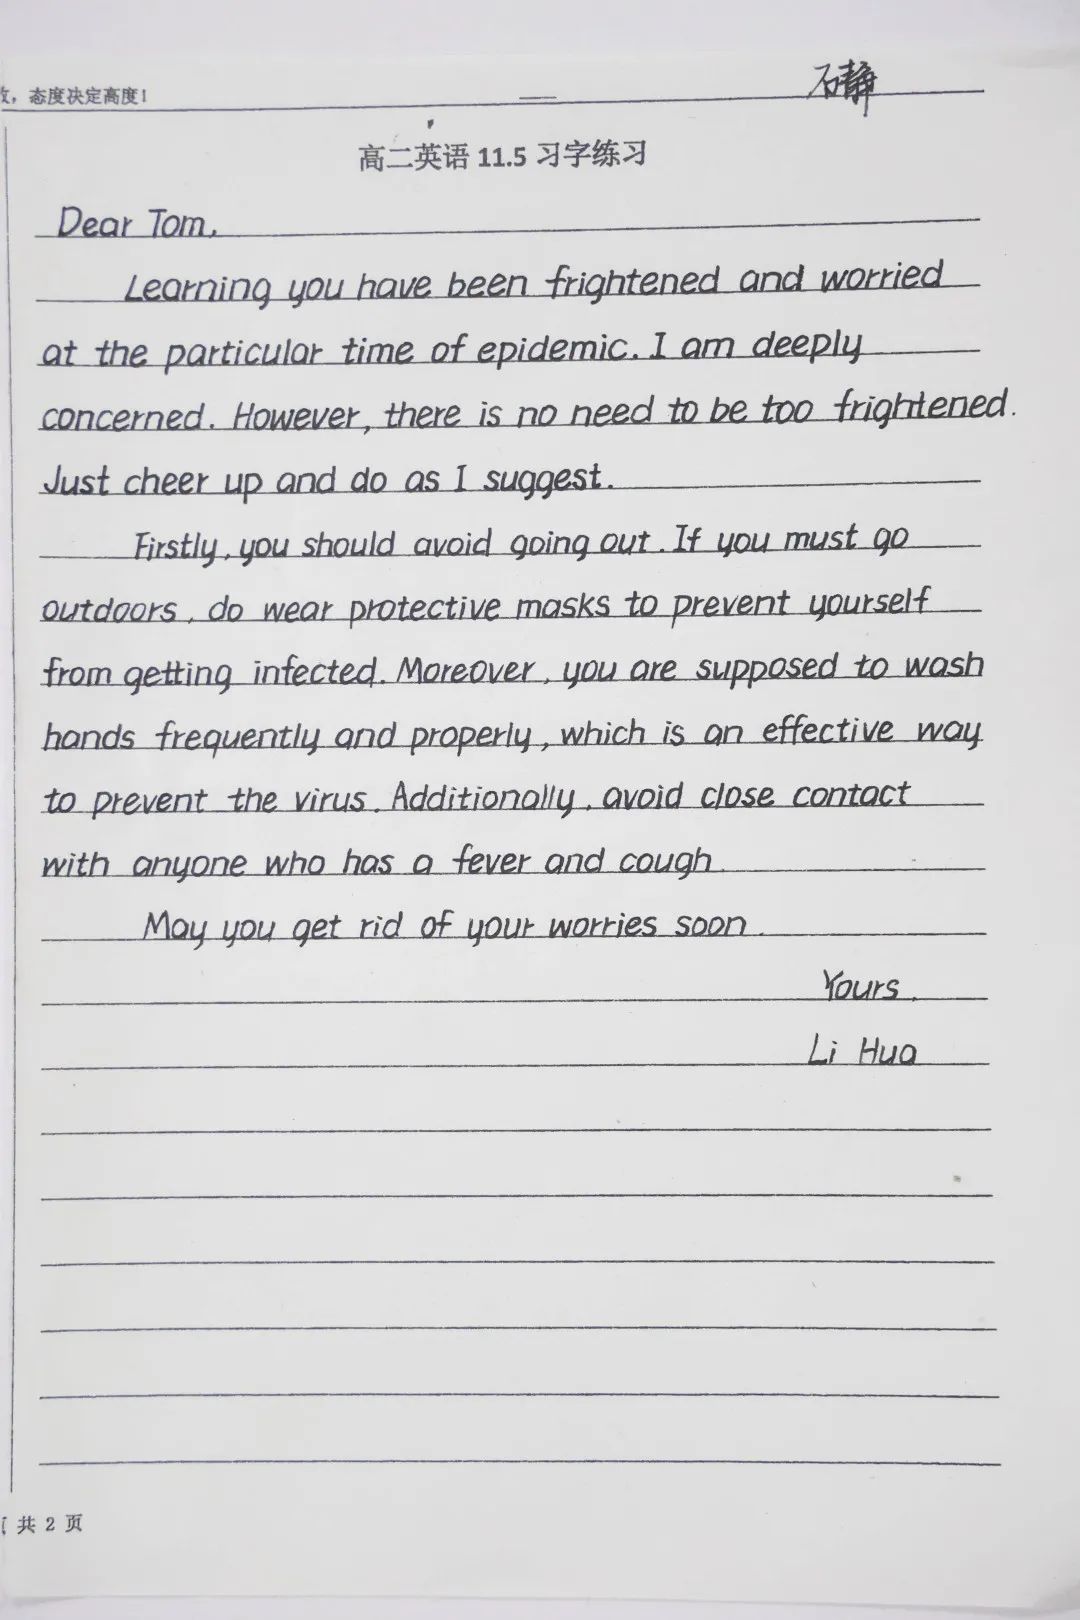 态度决定高度！
石静
高二英语 11.5 习字练习
Dear Tom,
Learning you have been frightened and worried
at the particular time of epidemic. I am deeply
concerned. However, there is no need to be too frightened.
Just cheer up and do as I suggest.
Firstly, you should avoid going out. If you must go
outdoors, do wear protective masks to prevent yourself
from getting infected. Moreover, you are supposed to wash
hands frequently and properly, which is an effective way
to prevent the virus. Additionally, avoid close contact
with anyone who has a fever and cough.
May you get rid of your worries soon.
Yours,
Li Hua
共 2 页